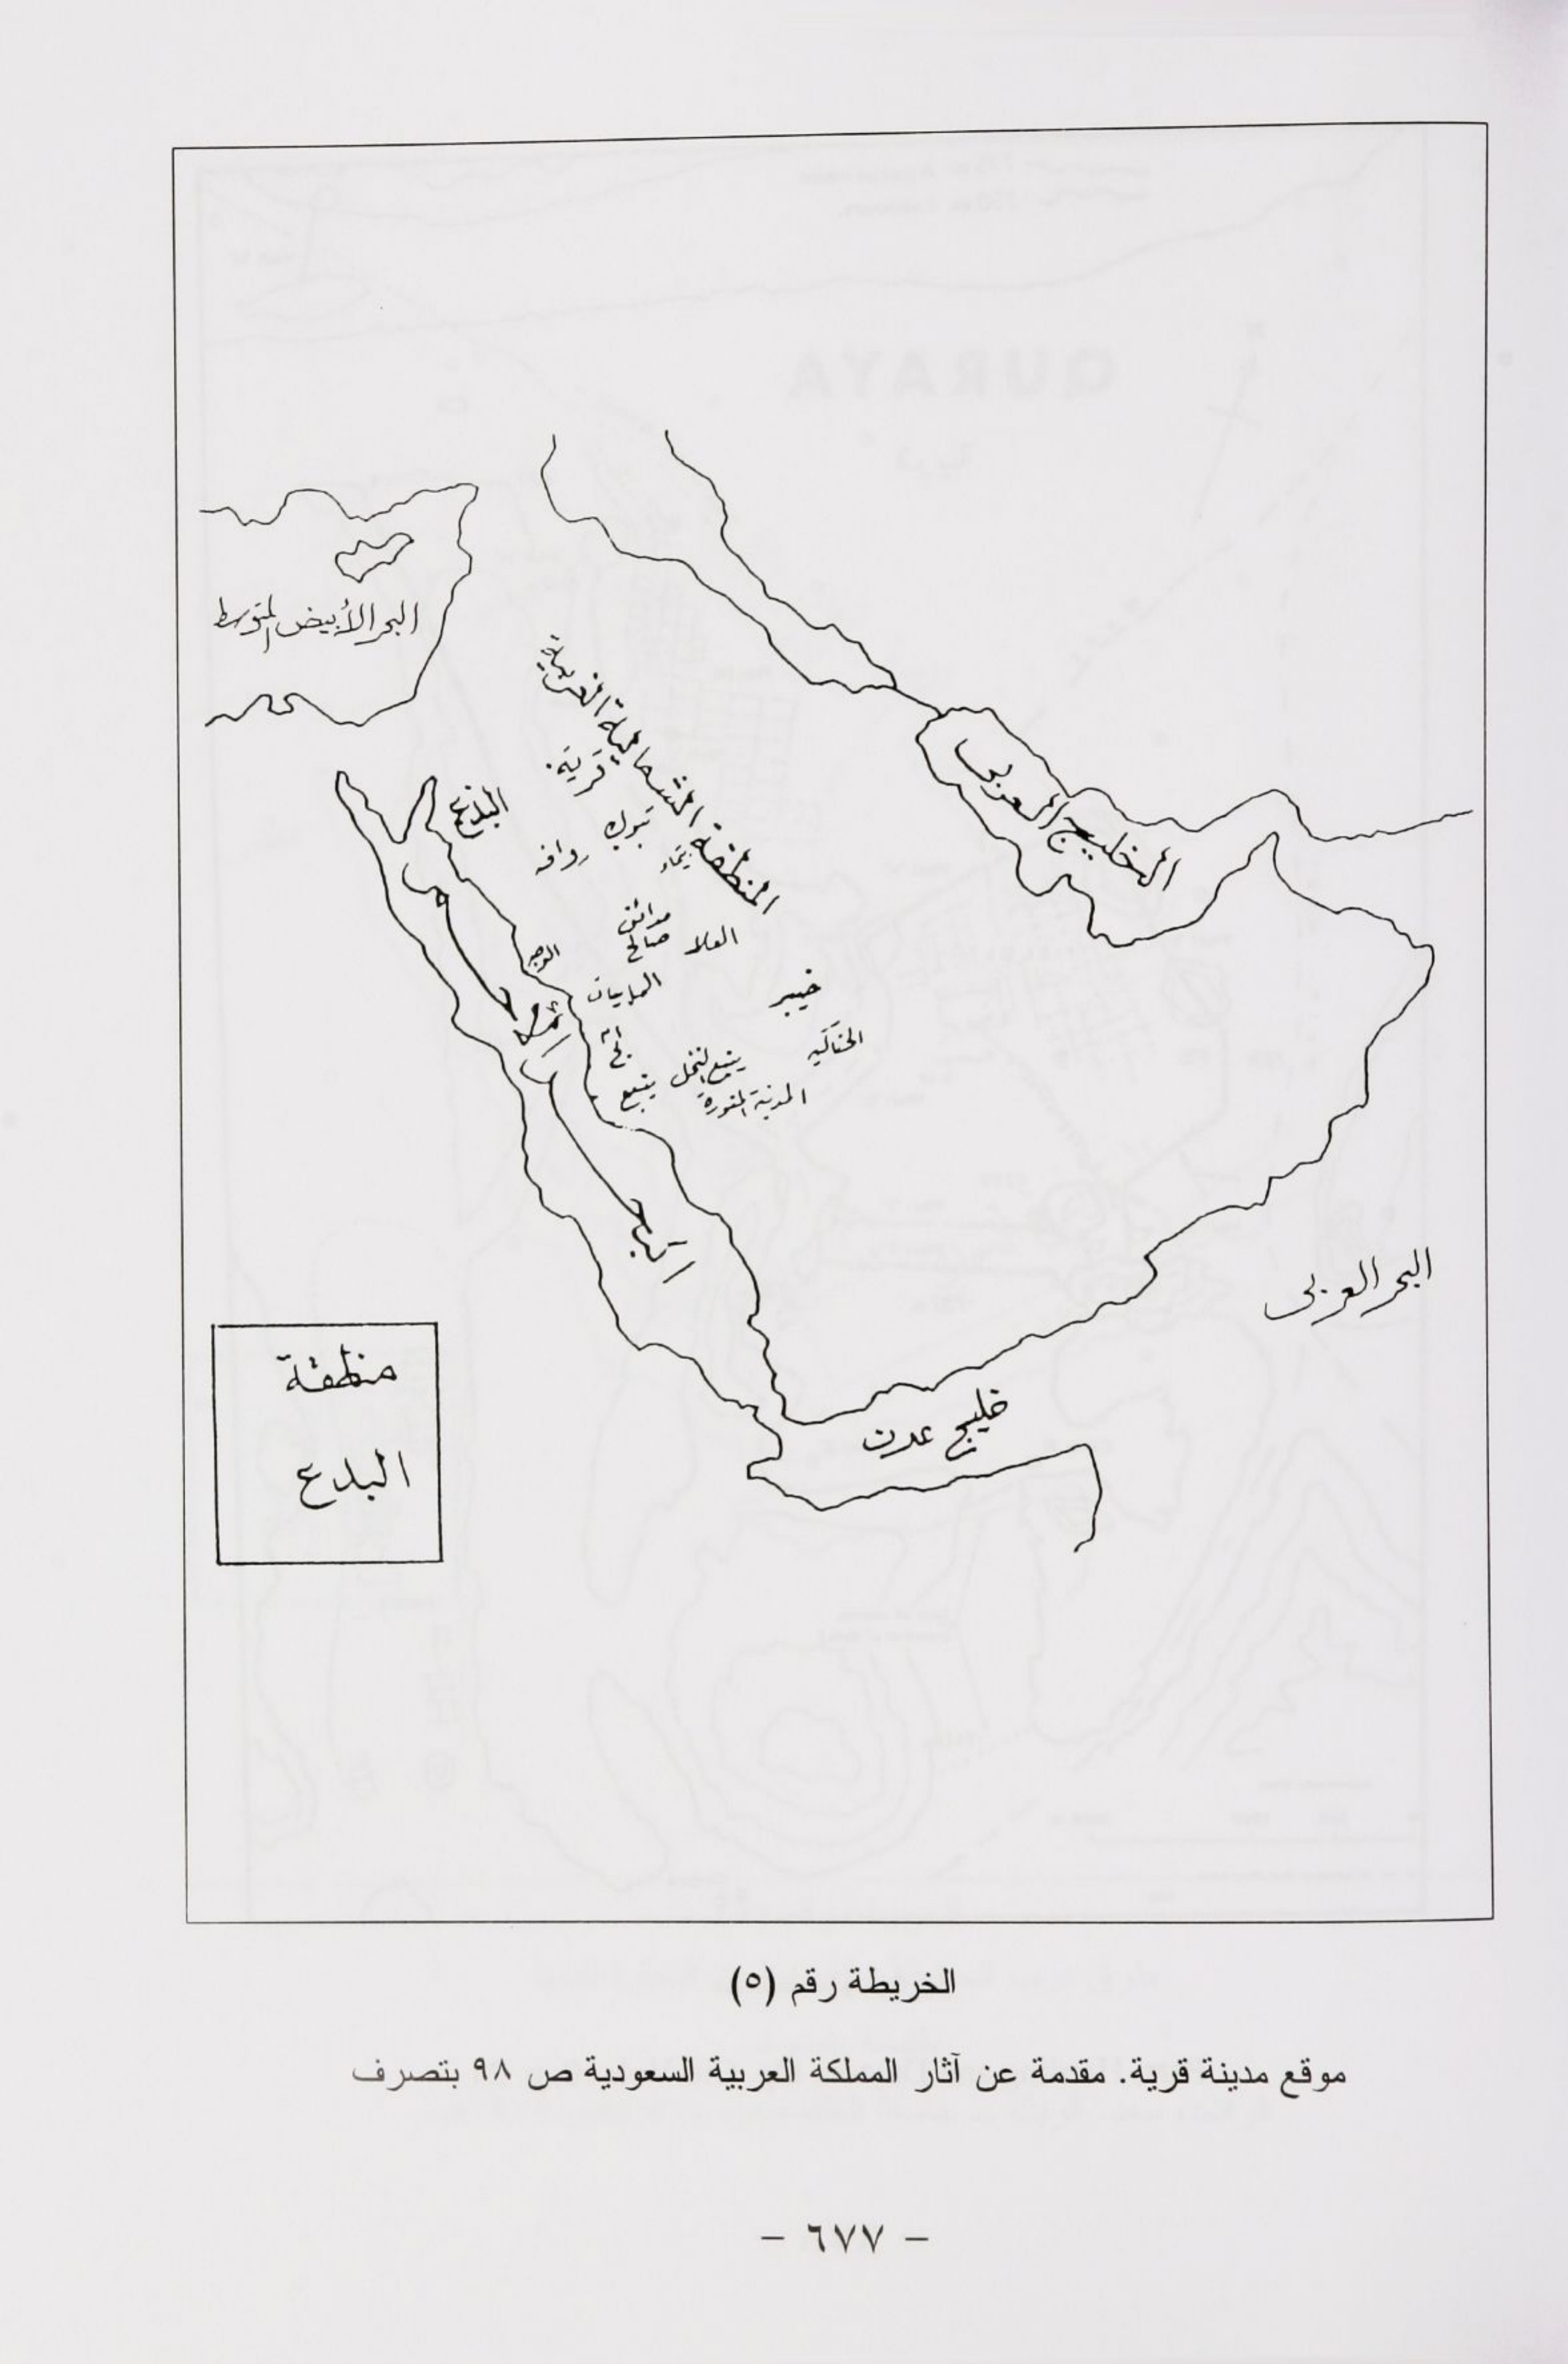 البحر الأبيض المتوسط
المنطقة الشمالية الغربية
قرية
البدع
تبوك
روافه
تيماء
الخليج العربي
مدائن
صالح
العلا
الوجه
المابيات
خيبر
الحناكيه
ينبع النخل
ينبع
المدينة المنورة
البحر
الأحمر
البحر العربي
خليج عدن
منطقة
البدع
الخريطة رقم (٥)
موقع مدينة قرية. مقدمة عن آثار المملكة العربية السعودية ص ٩٨ بتصرف
- ٦٧٧ -